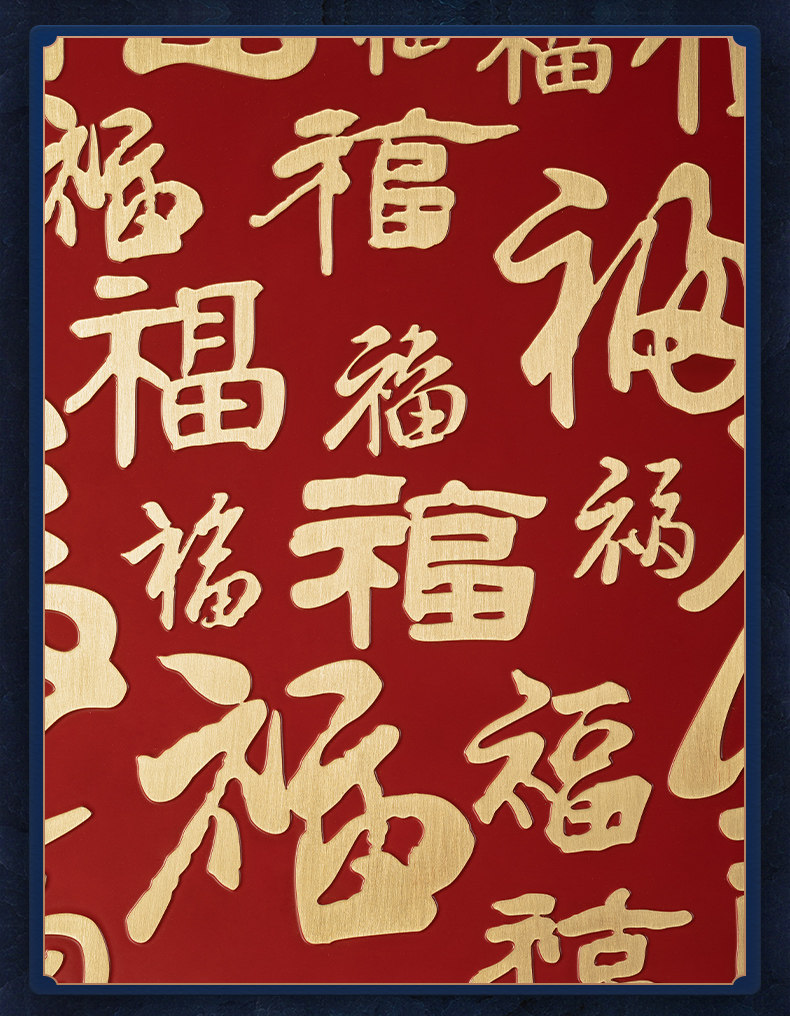 福 福
福 福 福
福 福
福 福 福
福 福
福